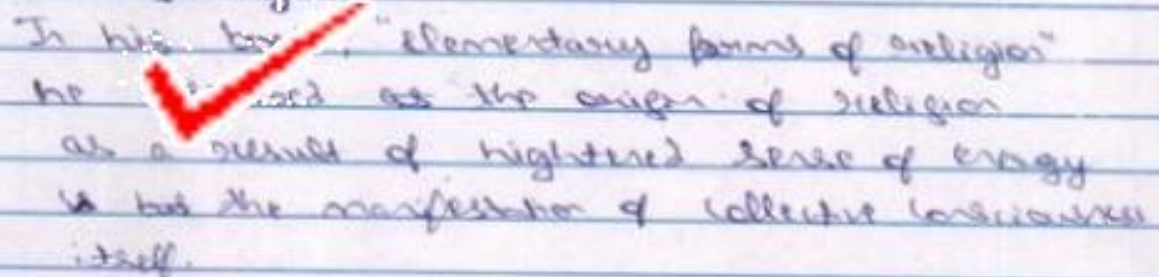 In his "Elementary forms of religion"
he as the origin of religion
as a result of hightened sense of energy
is but the manifestation of collective consciousness
itself.